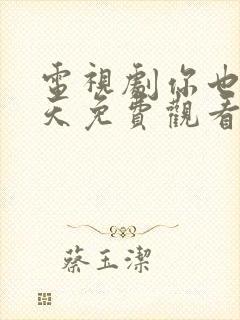 電視劇你也
天免費觀看
蔡玉潔